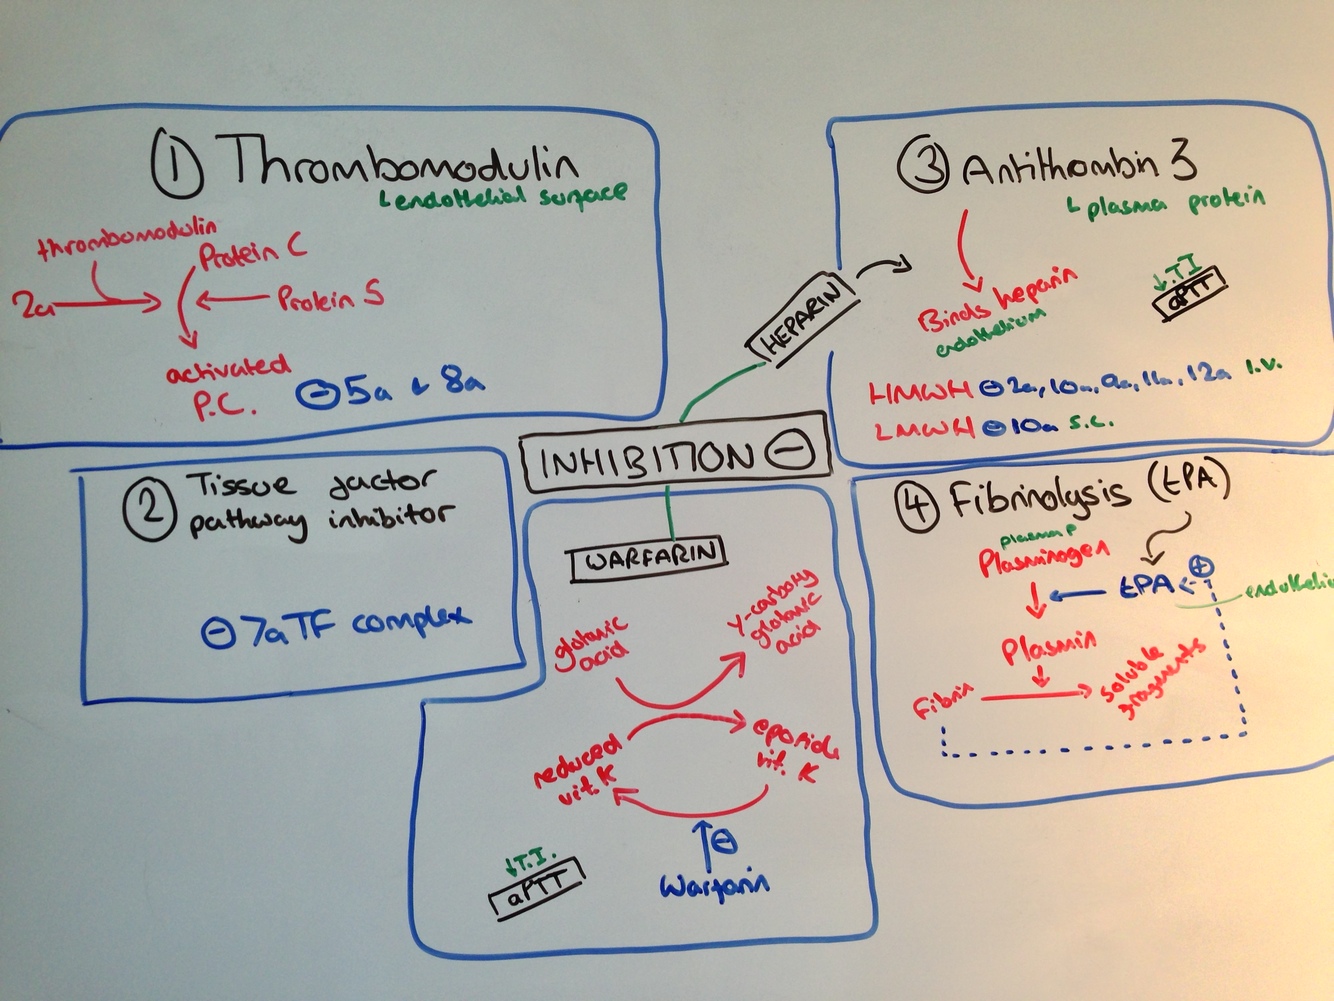 ① Thrombomodulin
↳ endothelial surface
thrombomodulin
Protein C
2a
Protein S
activated
P.C.
⊖ 5a + 8a
② Tissue factor
pathway inhibitor
⊖ 7a TF complex
INHIBITION ⊖
HEPARIN
WARFARIN
glutamic
acid
γ-carboxy
glutamic
acid
reduced
vit. K
epoxide
vit. K
⊖
Warfarin
↓T.I.
aPTT
③ Antithrombin 3
↳ plasma protein
Binds heparin
endothelium
↓T.I
aPTT
HMWH ⊖ 2a, 10a, 9a, 11a, 12a I.V.
LMWH ⊖ 10a S.C.
④ Fibrinolysis (tPA)
plasma P
Plasminogen
tPA
⊕
Plasmin
Fibrin
soluble
fragments